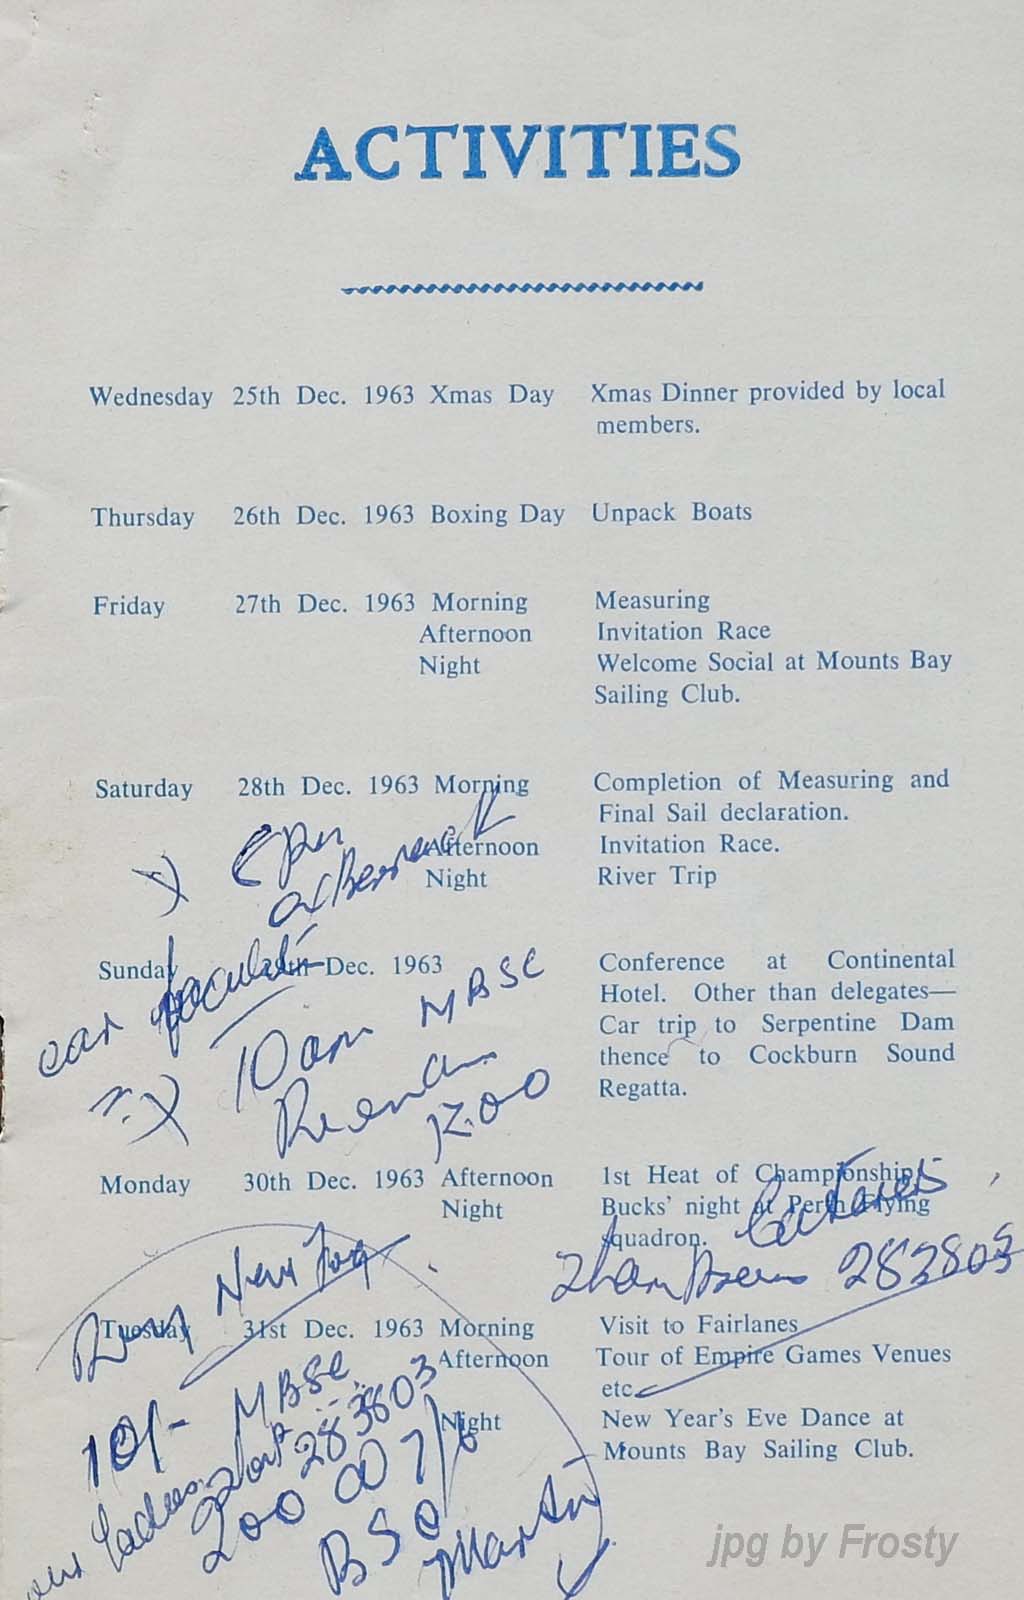 ACTIVITIES
Wednesday 25th Dec. 1963 Xmas Day Xmas Dinner provided by local
members.
Thursday 26th Dec. 1963 Boxing Day Unpack Boats
Friday 27th Dec. 1963 Morning Measuring
Afternoon Invitation Race
Night Welcome Social at Mounts Bay
Sailing Club.
Saturday 28th Dec. 1963 Morning Completion of Measuring and
Final Sail declaration.
Afternoon Invitation Race.
Night River Trip
Sunday 29th Dec. 1963 Conference at Continental
Hotel. Other than delegates—
Car trip to Serpentine Dam
thence to Cockburn Sound
Regatta.
car
10am MBSC
12.00
Monday 30th Dec. 1963 Afternoon 1st Heat of Championship
Night Bucks' night at Perth Flying
squadron.
282803
New
Tuesday 31st Dec. 1963 Morning Visit to Fairlanes
Afternoon Tour of Empire Games Venues
etc.
Night New Year's Eve Dance at
Mounts Bay Sailing Club.
10/- MBSC
Ladies 283803
200 7/6
BSC
jpg by Frosty